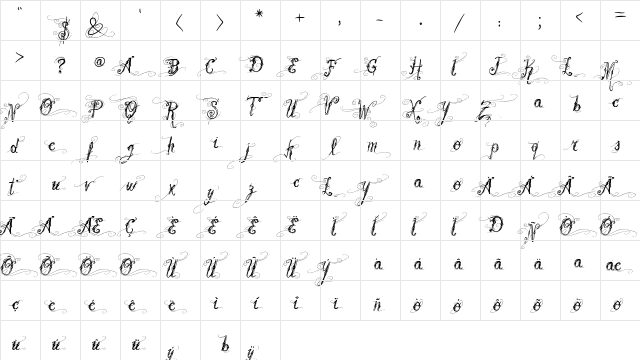 " $ & ' < > * + , - . / : ; < =
> ? @ A B C D E F G H I J K L M
N O P Q R S T U V W X Y Z a b c
d e f g h i j k l m n o p q r s
t u v w x y z c L y a o À Á Â Ã
Ä Å Æ Ç È É Ê Ë Ì Í Î Ï Ð Ñ Ò Ó
Ô Õ Ö Ø Ù Ú Û Ü Ý à á â ã ä å æ
ç è é ê ë ì í î ï ñ ò ó ô õ ö ø
ù ú û ü ý þ ÿ